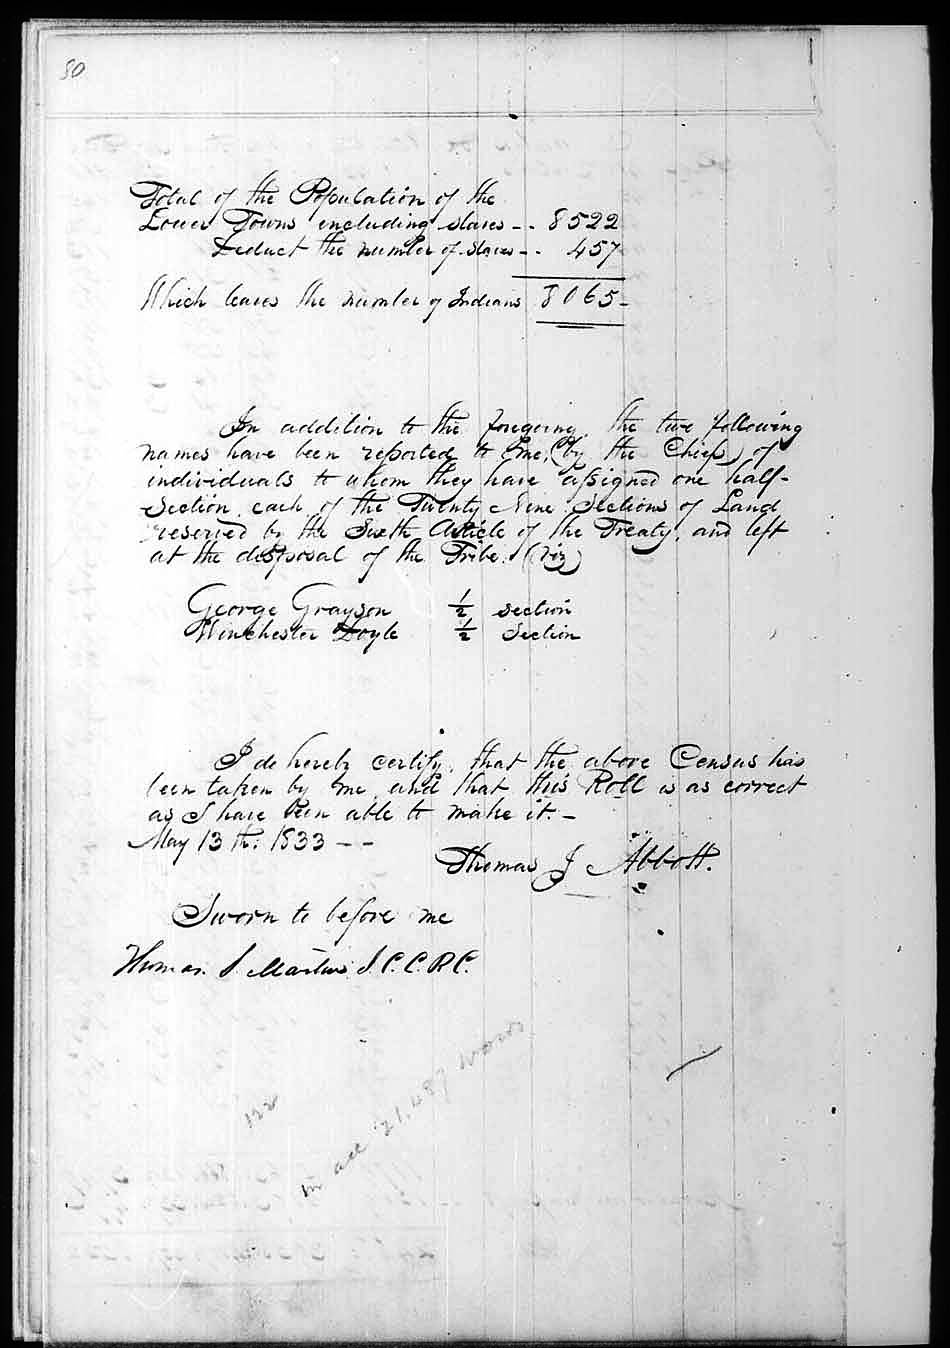 80
Total of the Population of the
Lower Towns including slaves - - 8522
Deduct the number of slaves - - 457
Which leaves the number of Indians 8065 -
In addition to the foregoing the two following
names have been reported to me, (by the Chiefs) of
individuals to whom they have assigned one half-
Section each of the Twenty Nine Sections of Land
reserved by the Sixth Article of the Treaty, and left
at the disposal of the Tribe. (Viz)
George Grayson ½ section
Winchester Doyle ½ Section
I do hereby certify, that the above Census has
been taken by me, and that this Roll is as correct
as I have been able to make it. -
May 13th: 1833 - -
Thomas J Abbott.
Sworn to before me
Thomas S. Martin J. C. C. R C.
122
in all